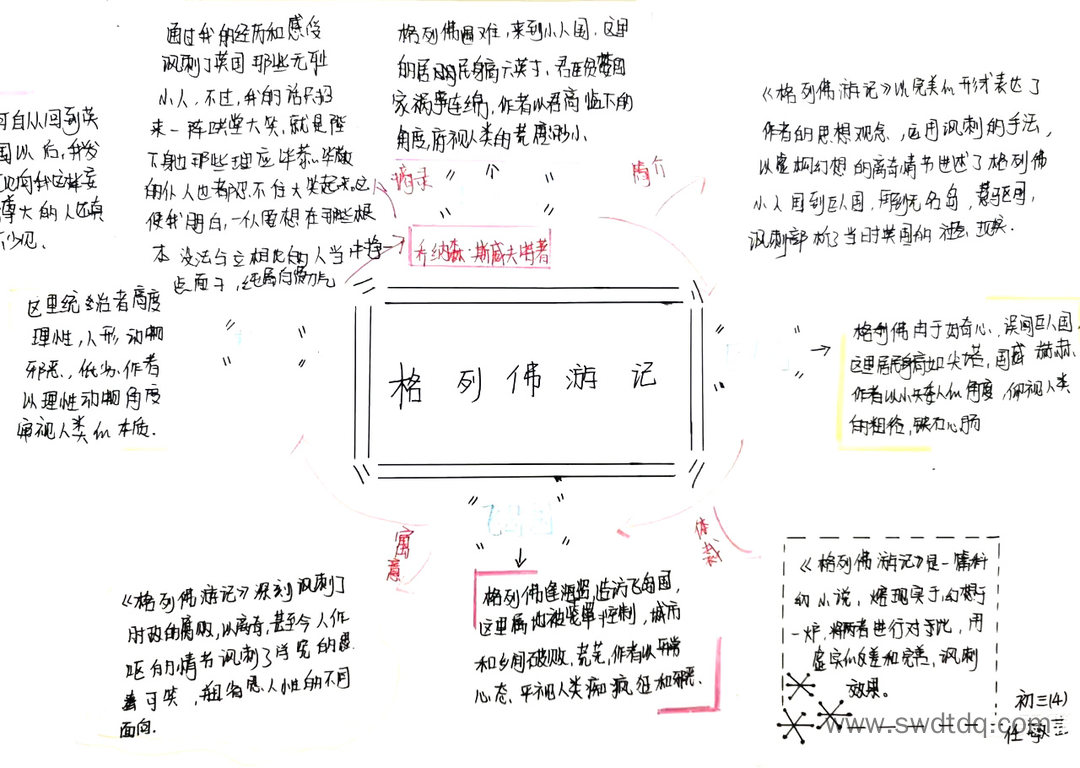 通过我的经历和感受
讽刺了英国那些无耻
小人,不过,我的话只招
来一阵哄堂大笑,就是陛
下身边那些理应毕恭毕敬
的仆人也都忍不住大笑起来。这
使我明白,一个人要想在那些根
本没法与之相比的人当中挣
点面子,纯属白费力气
可自从回到英
国以后,我发
见向我这样妄
尊大的人还真
不少见.
格列佛遇难,来到小人国,这里
的居民身高六英寸,
家祸事连绵,作者以居高临下的
角度,俯视人类的渺小.
摘录
简介
乔纳森·斯威夫特著
《格列佛游记》以完美的形式表达了
作者的思想观念,运用讽刺的手法,
以虚构幻想的离奇情节
小人国到巨人国,再到无名岛,慧骃国,
讽刺部析了当时英国的 现实.
这里统治者高度
理性,人形动物
邪恶,低劣,作者
以理性动物角度
审视人类的本质.
格列佛游记
格列佛由于好奇心,误闯巨人国,
这里居民身高如尖塔,国威赫赫,
作者以小矢车人的角度,仰视人类
的粗俗,铁石心肠
飞岛国
寓意
体裁
《格列佛游记》深刻讽刺了
时政的腐败,以离奇,甚至令人作
呕的情节讽刺了学究的愚
蠢可笑,人性的不同
面向.
格列佛逢海盗,造访飞岛国,
这里属地被笼罩控制,城市
和乡间破败,荒芜,作者以平常
心态、平视人类痴疯,狂和邪恶.
《格列佛游记》是一篇科
幻小说,熔现实于幻想于
一炉,将两者进行对比,用
虚实的反差和完美,讽刺
效果。
初三(4)
任
www.swdtdq.com